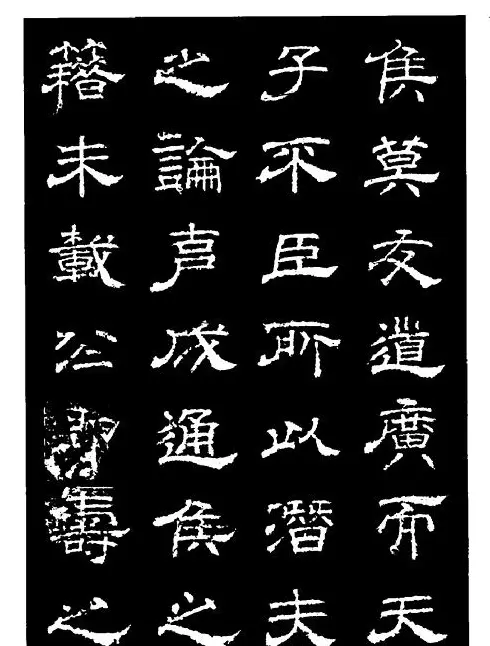 侯莫友道廣而天
子不臣所以潛夫
之論声成通侯之
籍未載公壽之